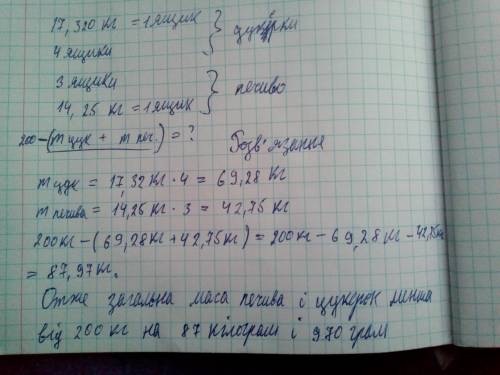 17,320 кг = 1 ящик } цукерки
4 ящики
3 ящики
14,25 кг = 1 ящик } печиво
200-(m цук + m печ.) = ?
Розв'язання
m цук = 17,32 кг · 4 = 69,28 кг
m печива = 14,25 кг · 3 = 42,75 кг
200кг - (69,28кг + 42,75кг) = 200кг - 69,28кг - 42,75кг
= 87,97кг.
Отже загальна маса печива і цукерок менша
від 200 кг на 87 кілограм і 970 грам